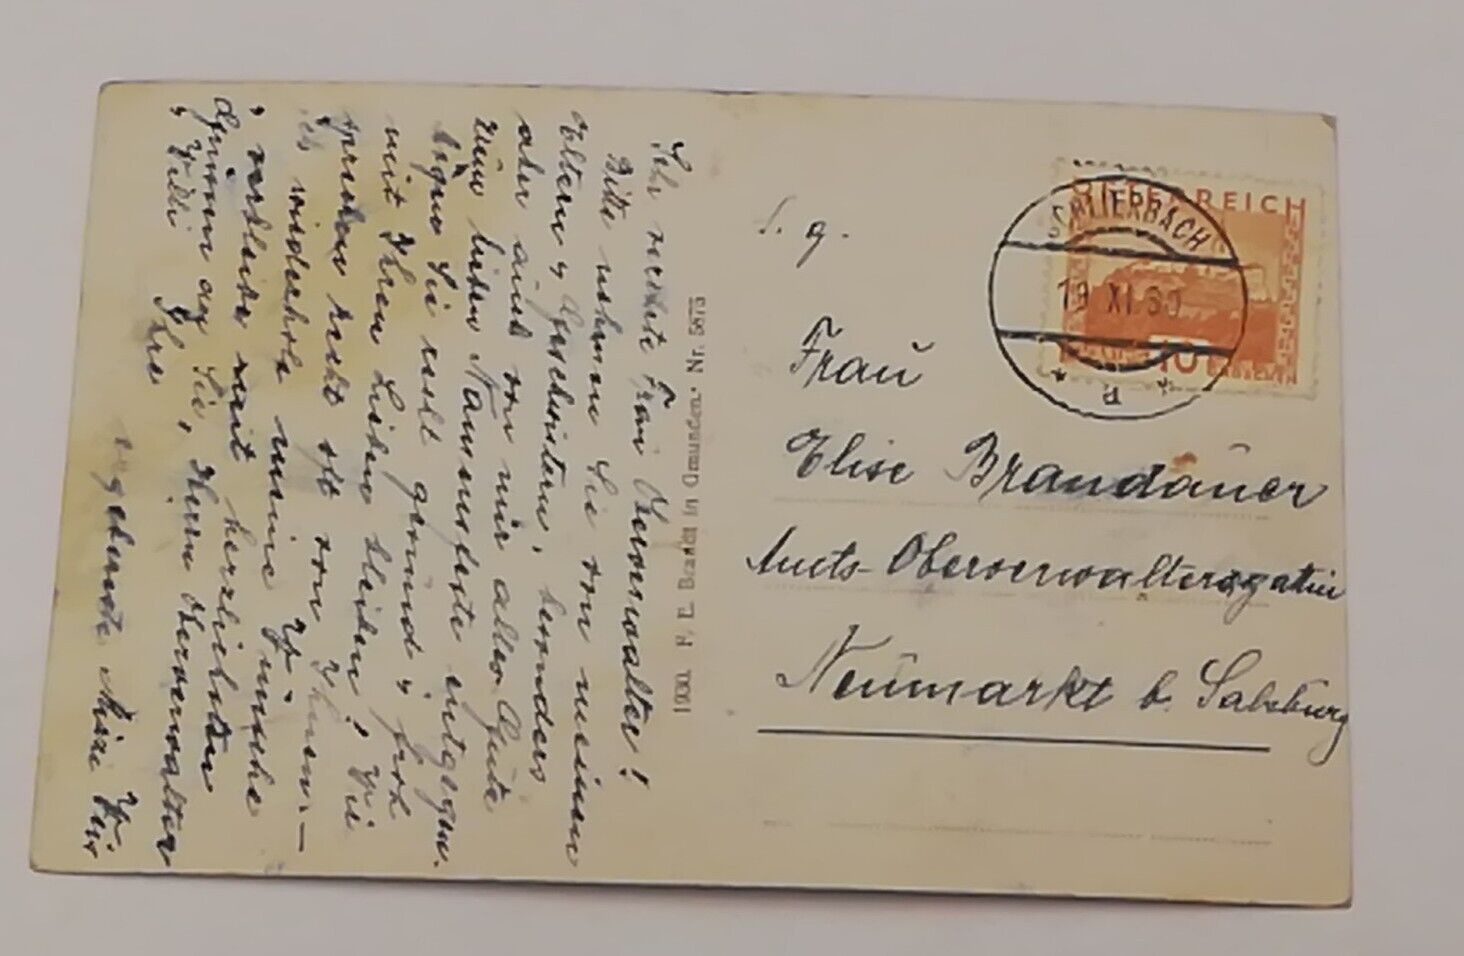 Sehr verehrte Frau Oberverwalter!
Bitte nehmen Sie von meinen
Eltern u. Geschwistern, besonders
aber auch von mir alles Gute
zum lieben Namensfeste entgegen.
Mögen Sie recht gesund u. froh
mit Ihren Lieben bleiben! Wir
sprechen recht oft von Ihnen. –
Ich wiederhole meine Wünsche
u. verbleibe mit herzlichsten
Grüssen an Sie, Herrn Oberverwalter
u. Willi Ihre
ergebenste Mizzi W.
1930. F. E. Brandt in Gmunden. Nr. 5873
S. g.
Frau
Elise Brandauer
Amts-Oberverwaltersgattin
Neumarkt b. Salzburg
ÖSTERREICH
10
SCHLIERBACH
19 XI 30